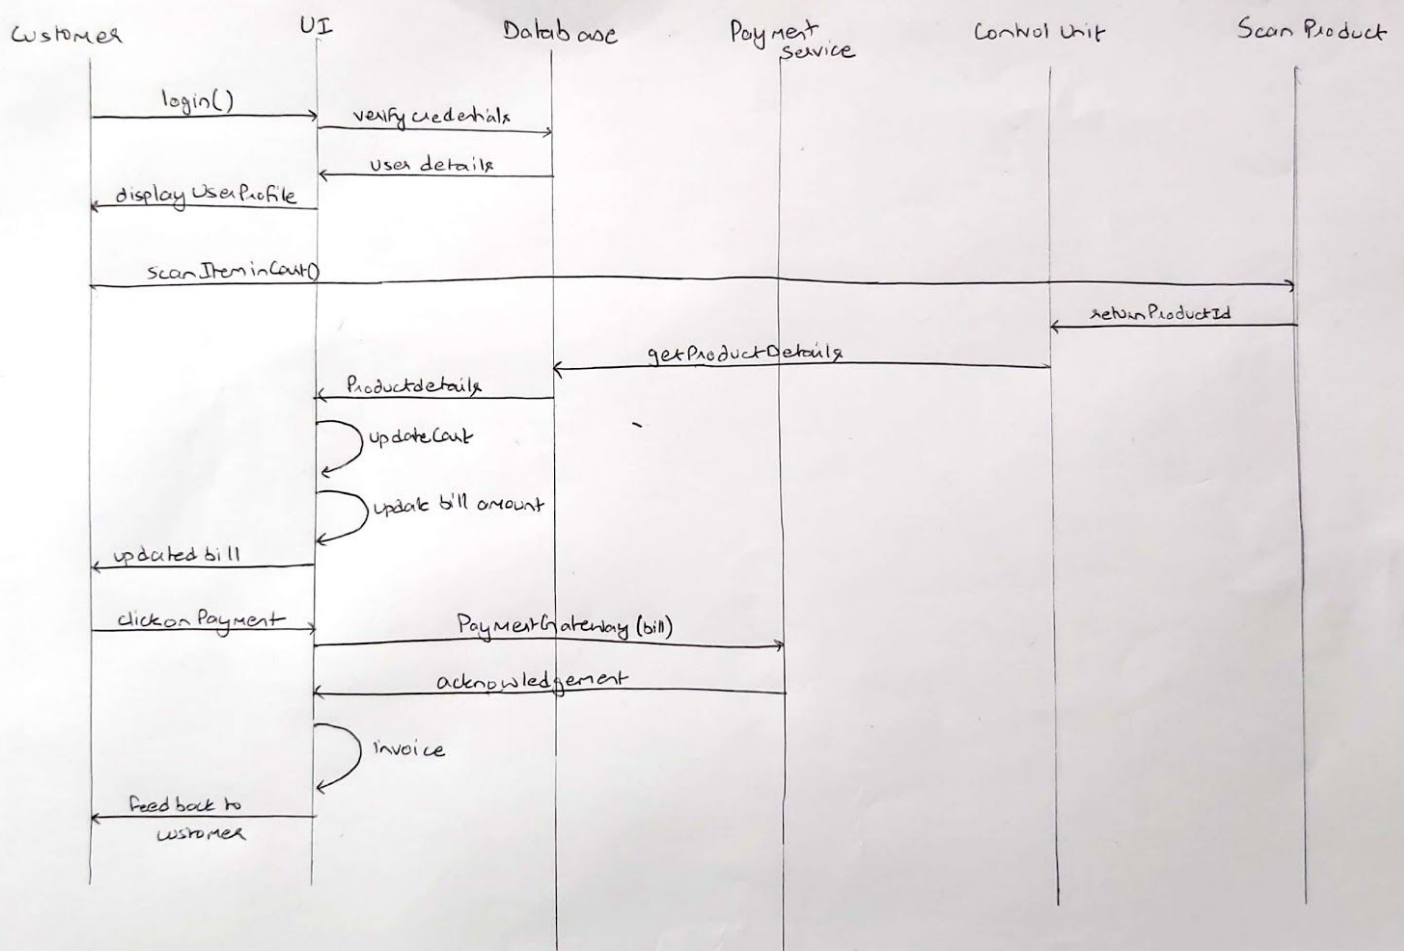 Customer
UI
Database
Payment
Service
Control Unit
Scan Product
login()
verify credentials
user details
display UserProfile
scanIteminCart()
returnProductId
getProductDetails
Productdetails
updateCart
update bill amount
updated bill
click on Payment
PaymentGateway (bill)
acknowledgement
invoice
feedback to
customer